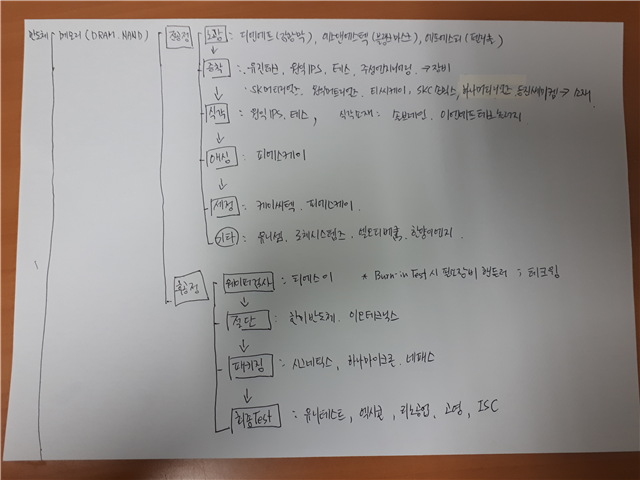 반도체 메모리 (DRAM. NAND) 전공정 노광 : 디엔에프 (감광막), 에스앤에스텍 (블랭크마스크), 에프에스티 (펠리클)
증착 : 유진테크, 원익IPS, 테스, 주성엔지니어링 → 장비
· SK머티리얼즈, 원익머트리얼즈, 티씨케이, SKC 솔믹스, 하나머티리얼즈 → 소재
식각 : 원익IPS, 테스, 식각소재 : 솔브레인, 이엔에프테크놀로지
애싱 : 피에스케이
세정 : 케이씨텍, 피에스케이
기타 : 유니셈, 로체시스템즈, 엘오티베큠, 한양이엔지
후공정 웨이퍼검사 : 티에스이 * Burn-in Test 시 필요장비 핸들러 : 테크윙
절단 : 한미반도체, 이오테크닉스
패키징 : 시그네틱스, 하나마이크론, 네패스
최종Test : 유니테스트, 엑시콘, 리노공업, 고영, ISC